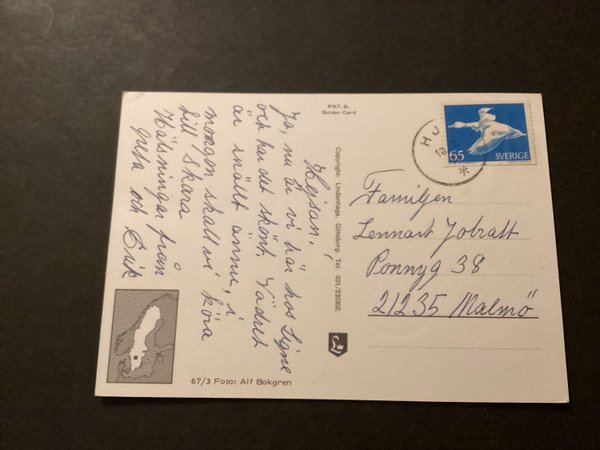 Hejsan,
Ja, nu är vi här hos Signe
och har det skönt. Vädret
är snällt ännu, i
morgon skall vi köra
till Skara
Hälsningar från
Greta och Erik
PAT. S.
Golden Card
Copyright: Lindenhags, Göteborg, Tel. 031/230302.
67/3 Foto: Alf Bokgren
65 SVERIGE
HU
Familjen
Lennart
Ponnyg 38
21235 Malmö